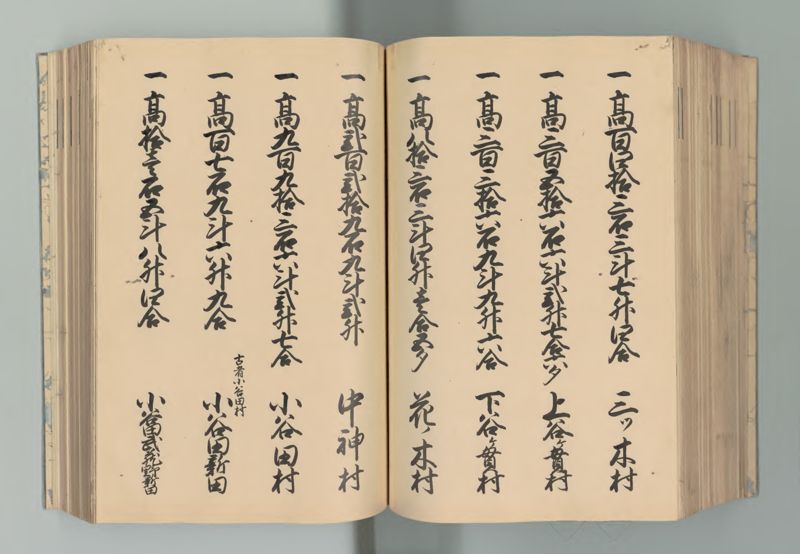 一 高百四拾三石三斗七升四合 三ツ木村
一 高三百五拾六石六斗弐升七合六夕 上谷ケ貫村
一 高三百三拾六石九斗九升六合 下谷ケ貫村
一 高八拾三石三斗四升壱合五夕 花ノ木村
一 高弐百弐拾九石九斗弐升 中神村
一 高九百九拾三石六斗弐升七合 小谷田村
古者小谷田村
一 高百七石九斗六升九合 小谷田新田
一 高拾三石五斗八升四合 小谷田武蔵野新田